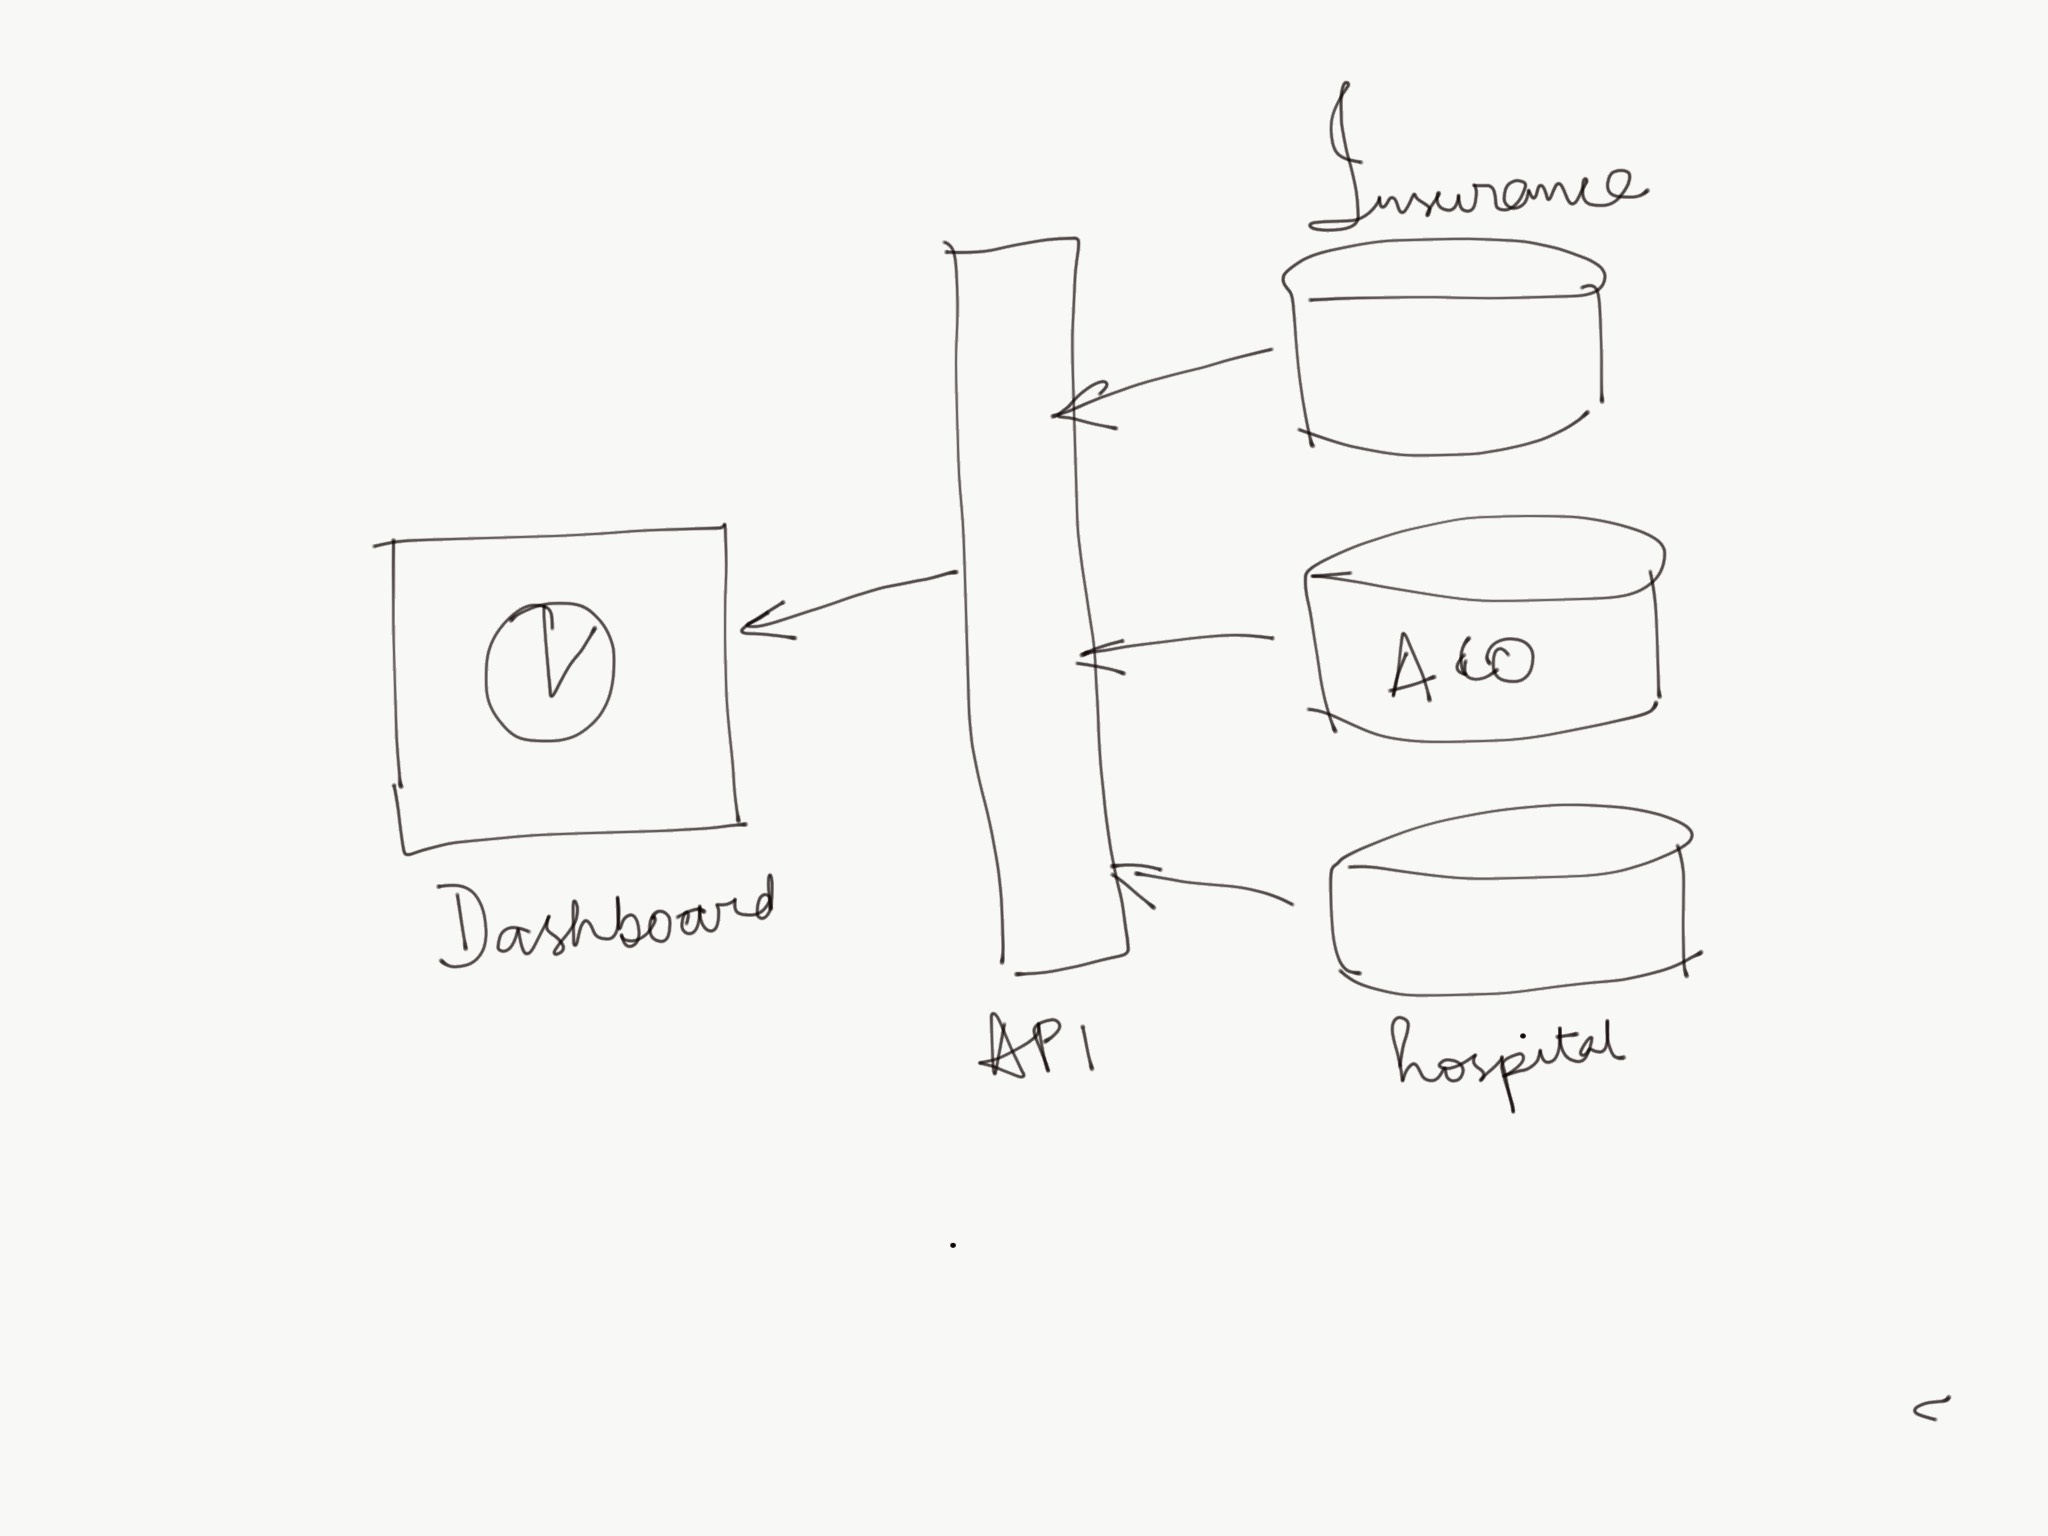 Insurance
ACO
Dashboard
API
hospital